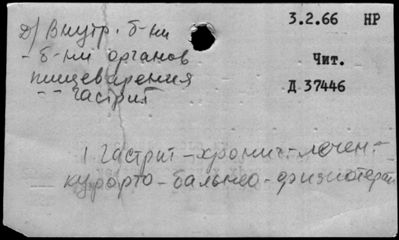 д) Внутр. б-ни
3.2.66 НР
- б-ни органов
пищеварения
Чит.
-- Гастрит
Д 37446
1 Гастрит - хронич. - лечен. -
курорто - бальнео - физиотерап